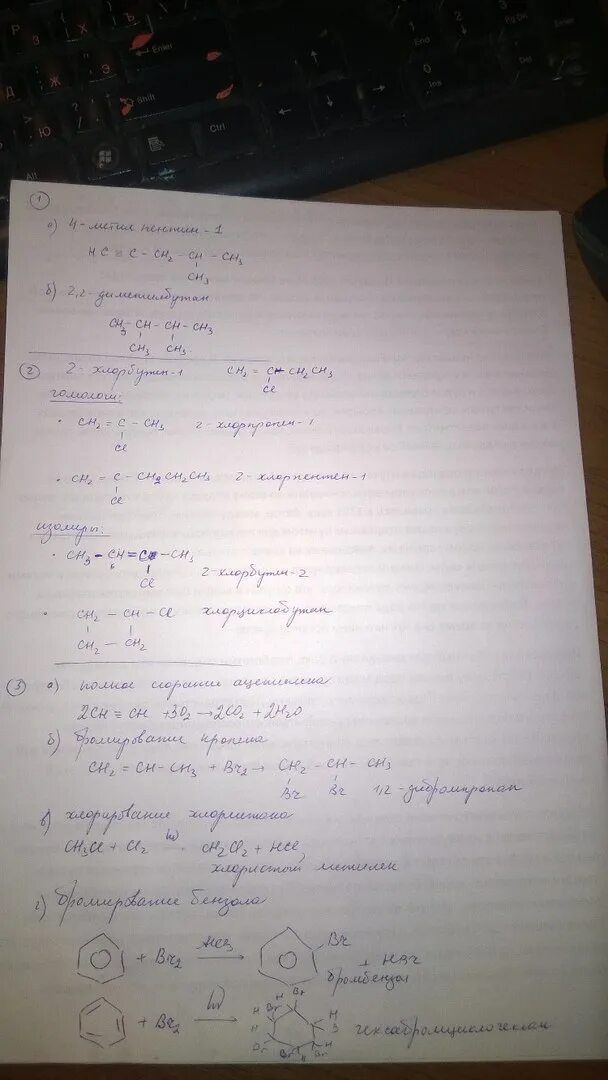 1
а) 4-метил пентин-1
HC ≡ C - CH2 - CH - CH3
CH3
б) 2,2-диметилбутан
CH3 - CH - CH - CH3
CH3 CH3
2 2-хлорбутен-1 CH2 = C - CH2CH3
Cl
гомологи:
· CH2 = C - CH3 2-хлорпропен-1
Cl
· CH2 = C - CH2CH2CH3 2-хлорпентен-1
Cl
изомеры:
· CH3 - CH = C - CH3
Cl
2-хлорбутен-2
· CH2 - CH - Cl хлорциклобутан
CH2 - CH2
3 а) полное сгорание ацетилена
2CH ≡ CH + 3O2 → 2CO2 + 2H2O
б) бромирование пропена
CH2 = CH - CH3 + Br2 → CH2 - CH - CH3
Br Br 1,2-дибромпропан
в) хлорирование хлорметана
hν
CH3Cl + Cl2 → CH2Cl2 + HCl
хлористый метилен
г) бромирование бензола
+ Br2 AlCl3 → Br + HBr
бромбензол
+ Br2 hν → H Br H Br H Br H Br H Br
гексабромциклогексан
Enter
Shift
Ctrl
Alt
1
End
2
3
Pg Dn
0
Ins
Del